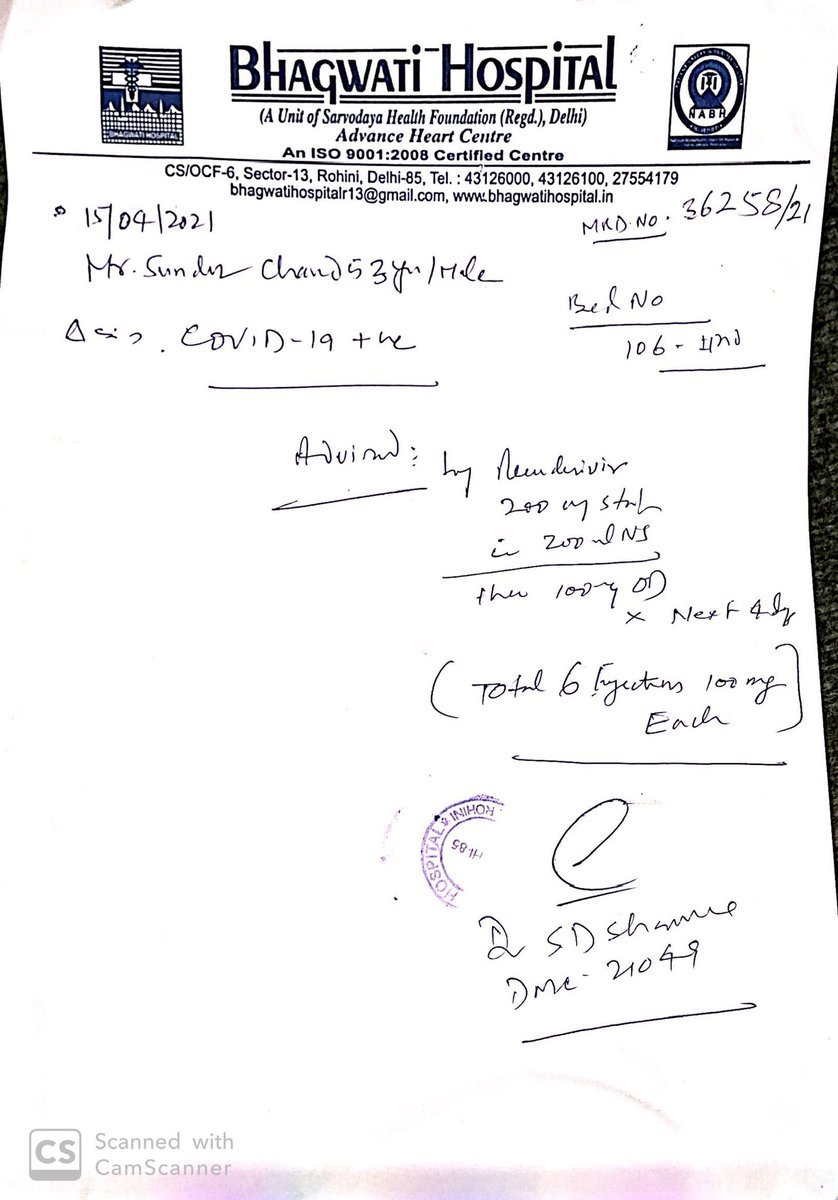 BHAGWATI HOSPITAL
(A Unit of Sarvodaya Health Foundation (Regd.), Delhi)
Advance Heart Centre
An ISO 9001:2008 Certified Centre
CS/OCF-6, Sector-13, Rohini, Delhi-85, Tel. : 43126000, 43126100, 27554179
bhagwatihospitalr13@gmail.com, www.bhagwatihospital.in
BHAGWATI HOSPITAL
NABH
15/04/2021
MRD.NO. 36258/21
Mr. Sunder Chand 53 yrs/Male
Bed No
106 - IInd
COVID-19 +ve
Advised:
Inj Remdesivir
200 mg stat
in 200 ml NS
then 100mg OD
x Next 4 dy
(Total 6 Injections 100 mg
Each)
HOSPITAL * ROHINI
HI.85
Dr SD Sharma
DMC - 21049
CS Scanned with
CamScanner